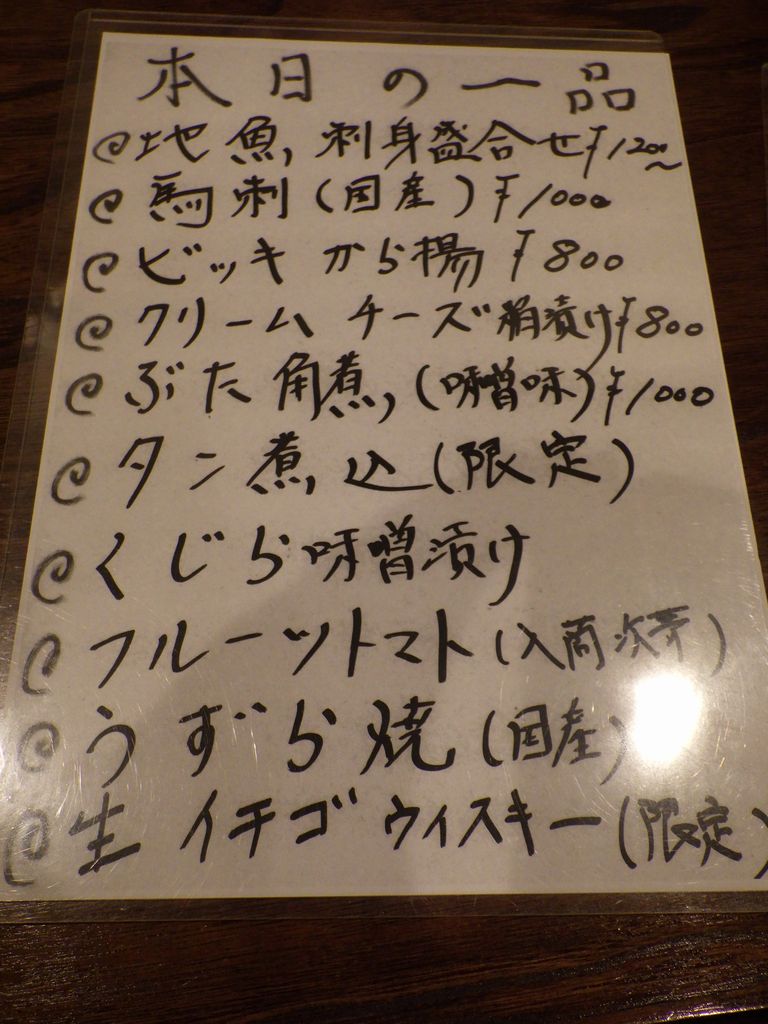 本日の一品
@地魚刺身盛合せ¥1200~
@馬刺(国産)¥1000
@ビッキから揚¥800
@クリームチーズ粕漬け¥800
@ぶた角煮(味噌味)¥1000
@タン煮込(限定)
@くじら味噌漬け
@フルーツトマト(入荷次第)
@うずら焼(国産)
@生イチゴウィスキー(限定)